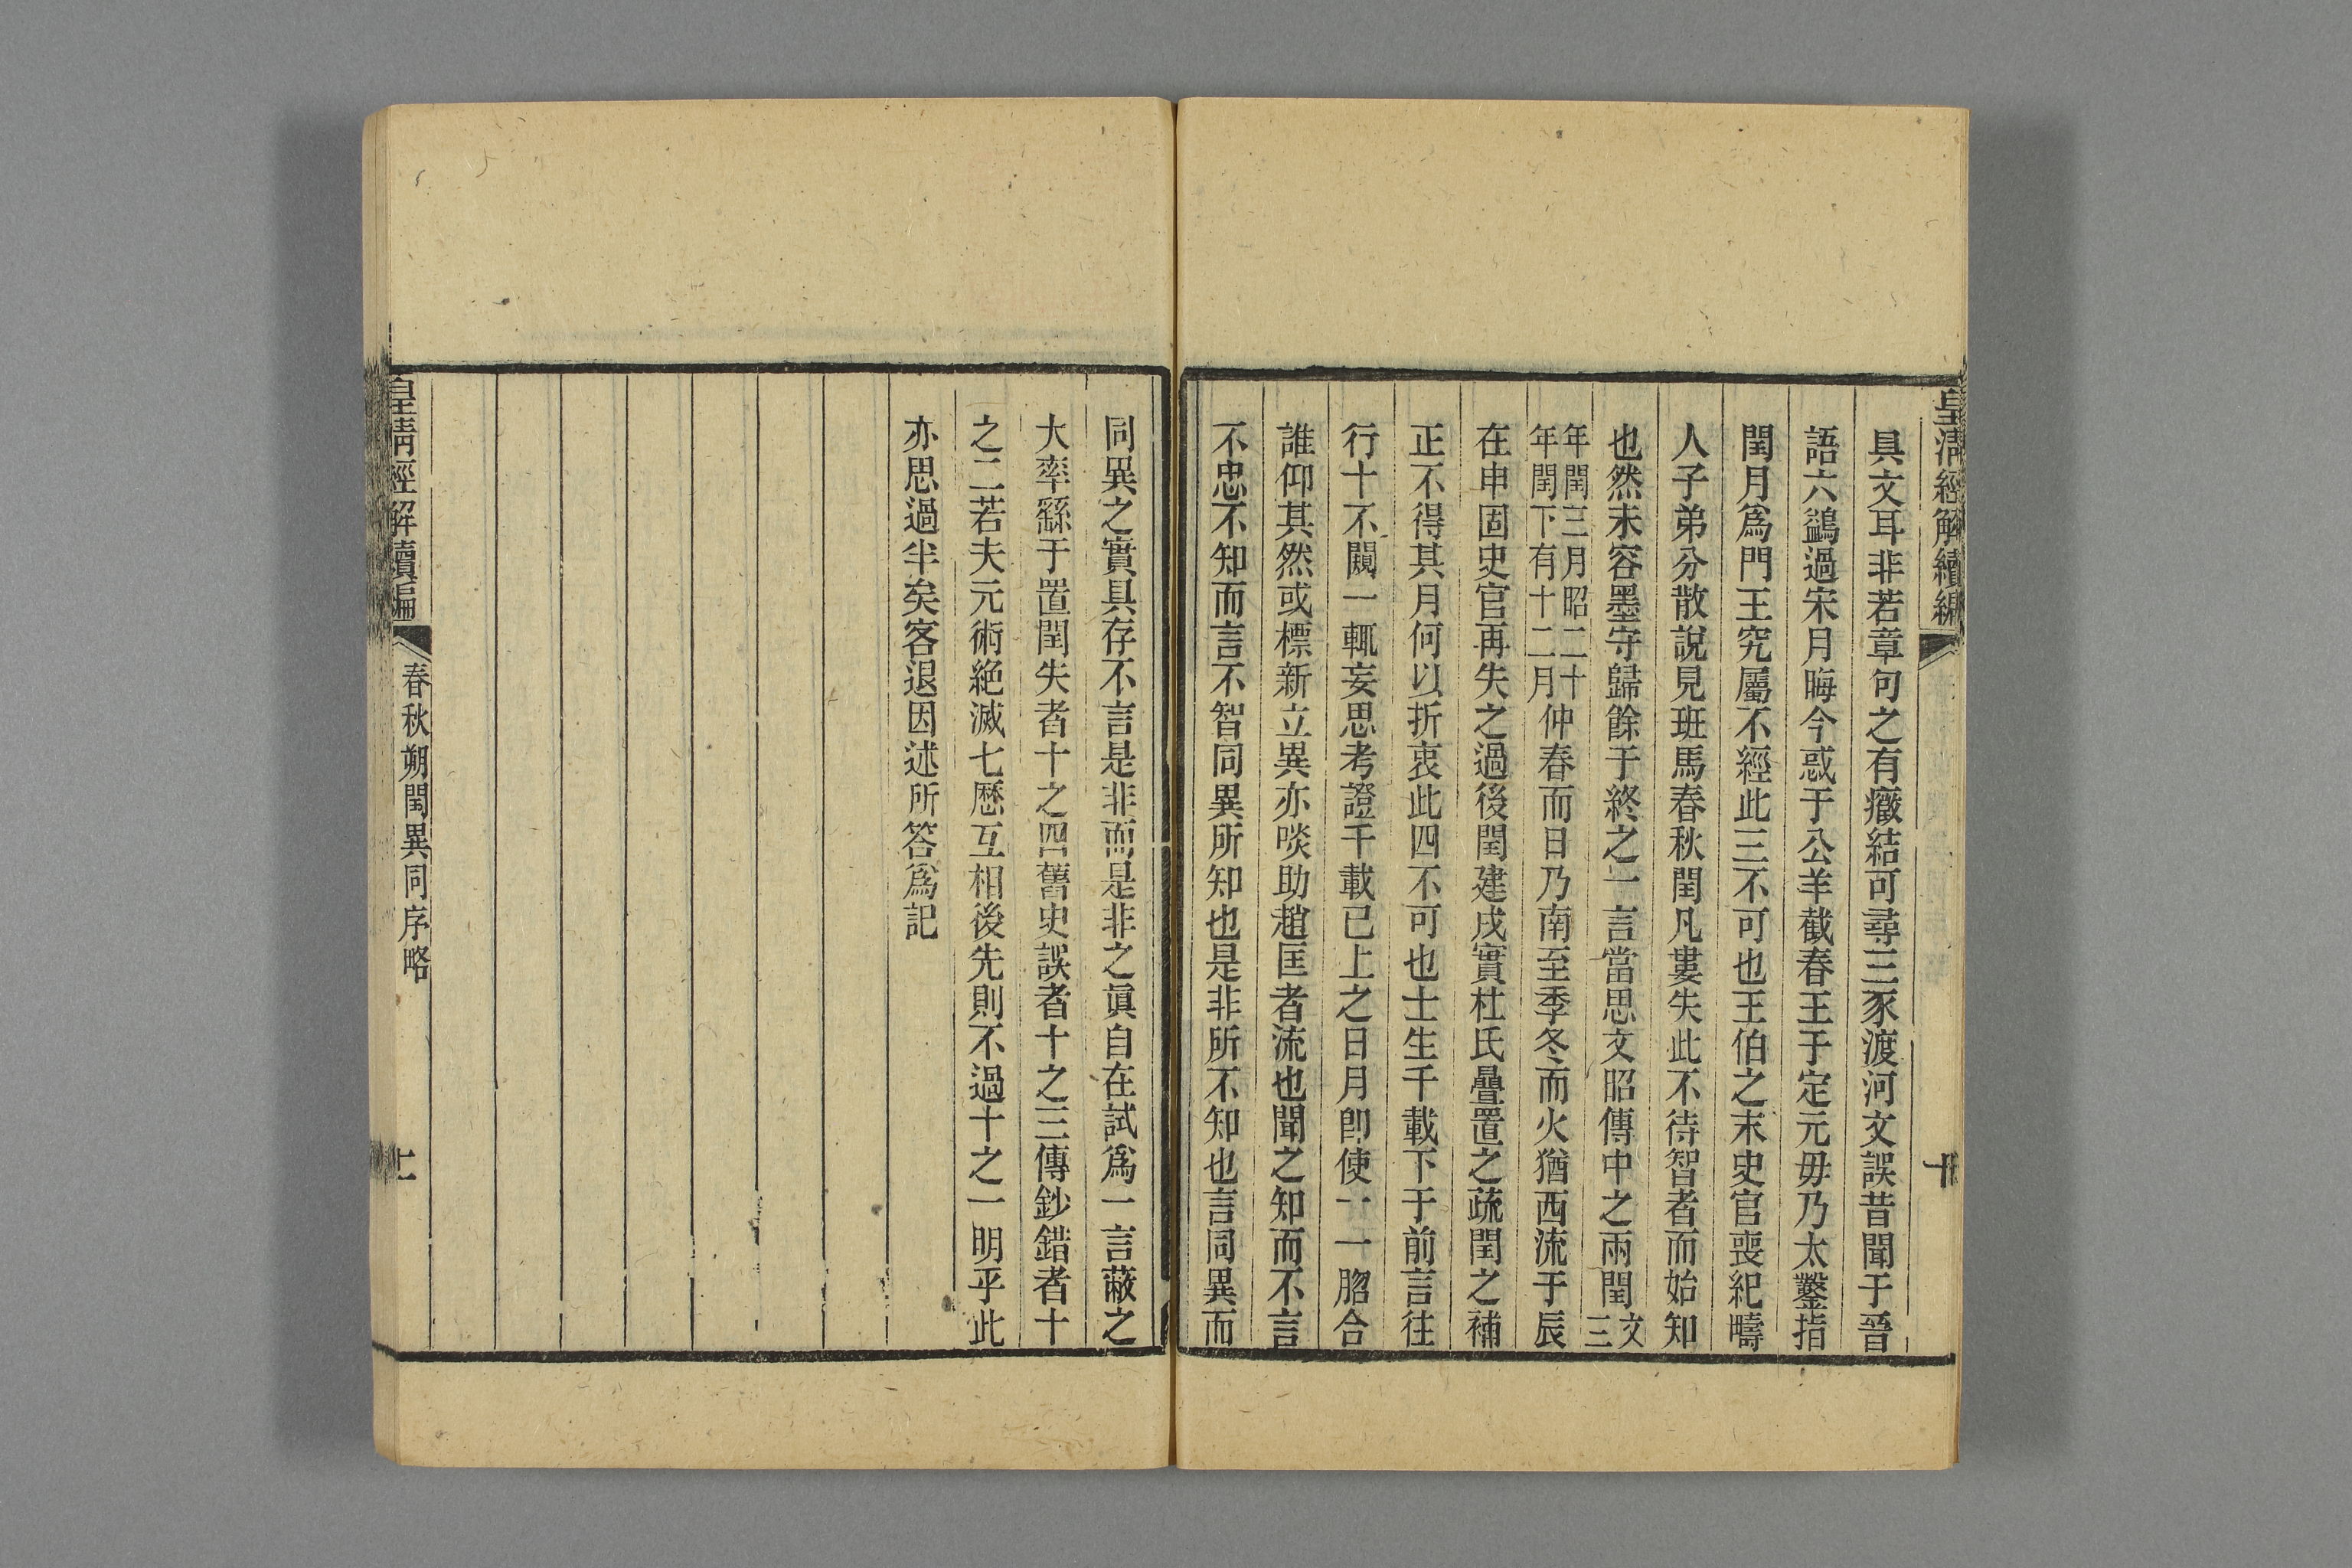 皇淸經解續編
十
具文耳非若章句之有癥結可尋三豕渡河文誤昔聞于晉
語六鷁過宋月晦今惑于公羊截春王于定元毋乃太鑿指
閏月爲門王究屬不經此三不可也王伯之末史官喪紀疇
人子弟分散說見班馬春秋閏凡婁失此不待智者而始知
也然未容墨守歸餘于終之一言當思文昭傳中之兩閏文三
年閏三月昭二十年閏下有十二月仲春而日乃南至季冬而火猶西流于辰
在申固史官再失之過後閏建戌實杜氏疊置之蔬閏之補
正不得其月何以折衷此四不可也士生千載下于前言往
行十不闚一輒妄思考證千載已上之日月卽使一一脗合
誰仰其然或標新立異亦啖助趙匡者流也聞之知而不言
不忠不知而言不智同異所知也是非所不知也言同異而
同異之實具存不言是非而是非之眞自在試爲一言蔽之
大率繇于置閏失者十之四舊史誤者十之三傳鈔錯者十
之二若夫元術絶滅七厯互相後先則不過十之一明乎此
亦思過半矣客退因述所答爲記
皇淸經解續編
春秋朔閏異同序略